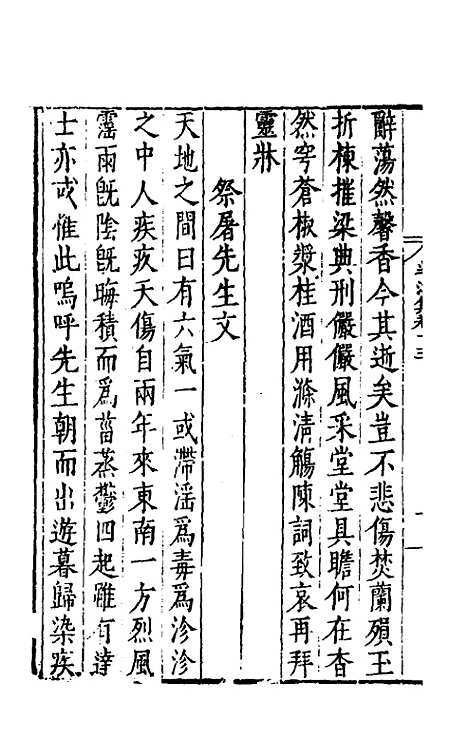 辭蕩然馨香今其逝矣豈不悲傷焚蘭殞玉
折棟摧梁典刑儼儼風采堂堂具瞻何在杳
然穹蒼椒漿桂酒用滌淸觴陳詞致哀再拜
靈牀
祭屠先生文
天地之間曰有六氣一或滯滛爲毒爲沴沴
之中人疾疢夭傷自兩年來東南一方烈風
霪雨旣陰旣晦積而爲菑蒸鬱四起雖有達
士亦或惟此嗚呼先生朝而出遊暮歸染疾